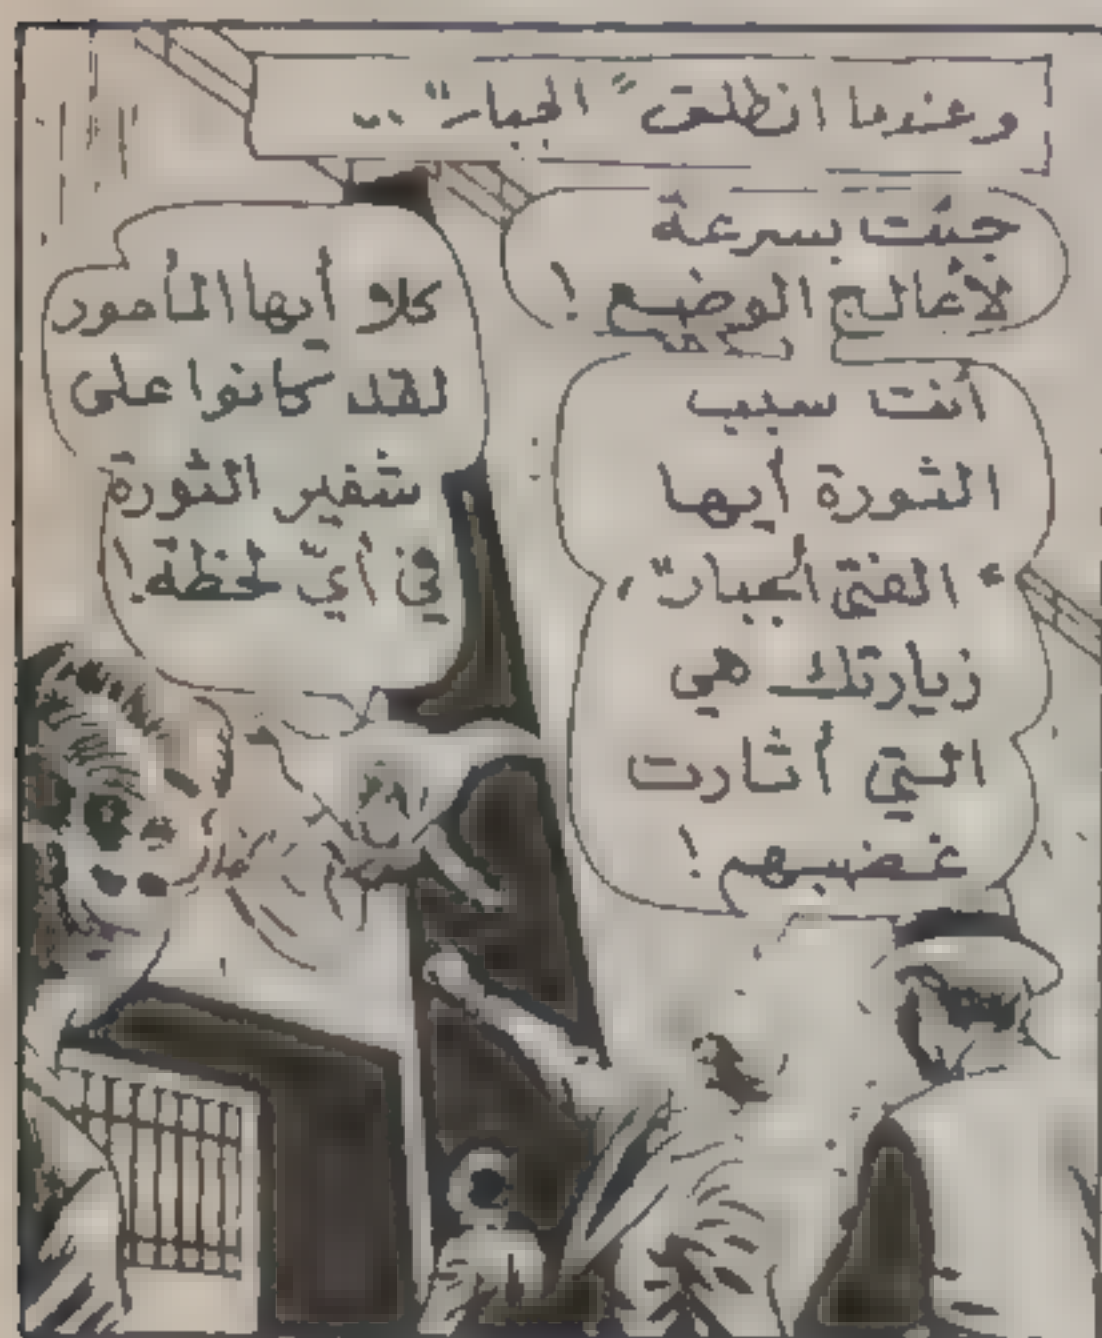 وعندما انطلق "الجبار" ..
جئت بسرعة
لأعالج الوضع !
أنت سبب
الثورة أيها
"الفتى الجبار"،
زيارتك هي
التي أثارت
غضبهم !
كلا أيها المأمور
لقد كانوا على
شفير الثورة
في أيّ لحظة !